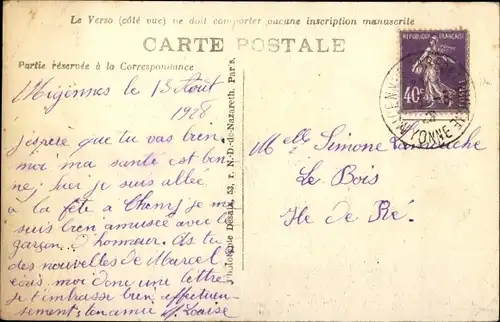 Le Verso (côté vue) ne doit comporter aucune inscription manuscrite
CARTE POSTALE
Partie réservée à la Correspondance
Migennes le 13 Août
1928
j'espère que tu vas bien
moi ma santé est bon
ne; hier je suis allée
à la fête à Cheny je me
suis bien amusée avec le
garçon d'honneur. As tu
des nouvelles de Marcel
écris moi donc une lettre
je t'embrasse bien affectueu
sement ton amie Louise
Phototypie Desaix, 53, r. N.-D.-de-Nazareth, Paris.
RÉPUBLIQUE FRANÇAISE
40c
YONNE
Melle Simone
Le Bois
Ile de Ré.